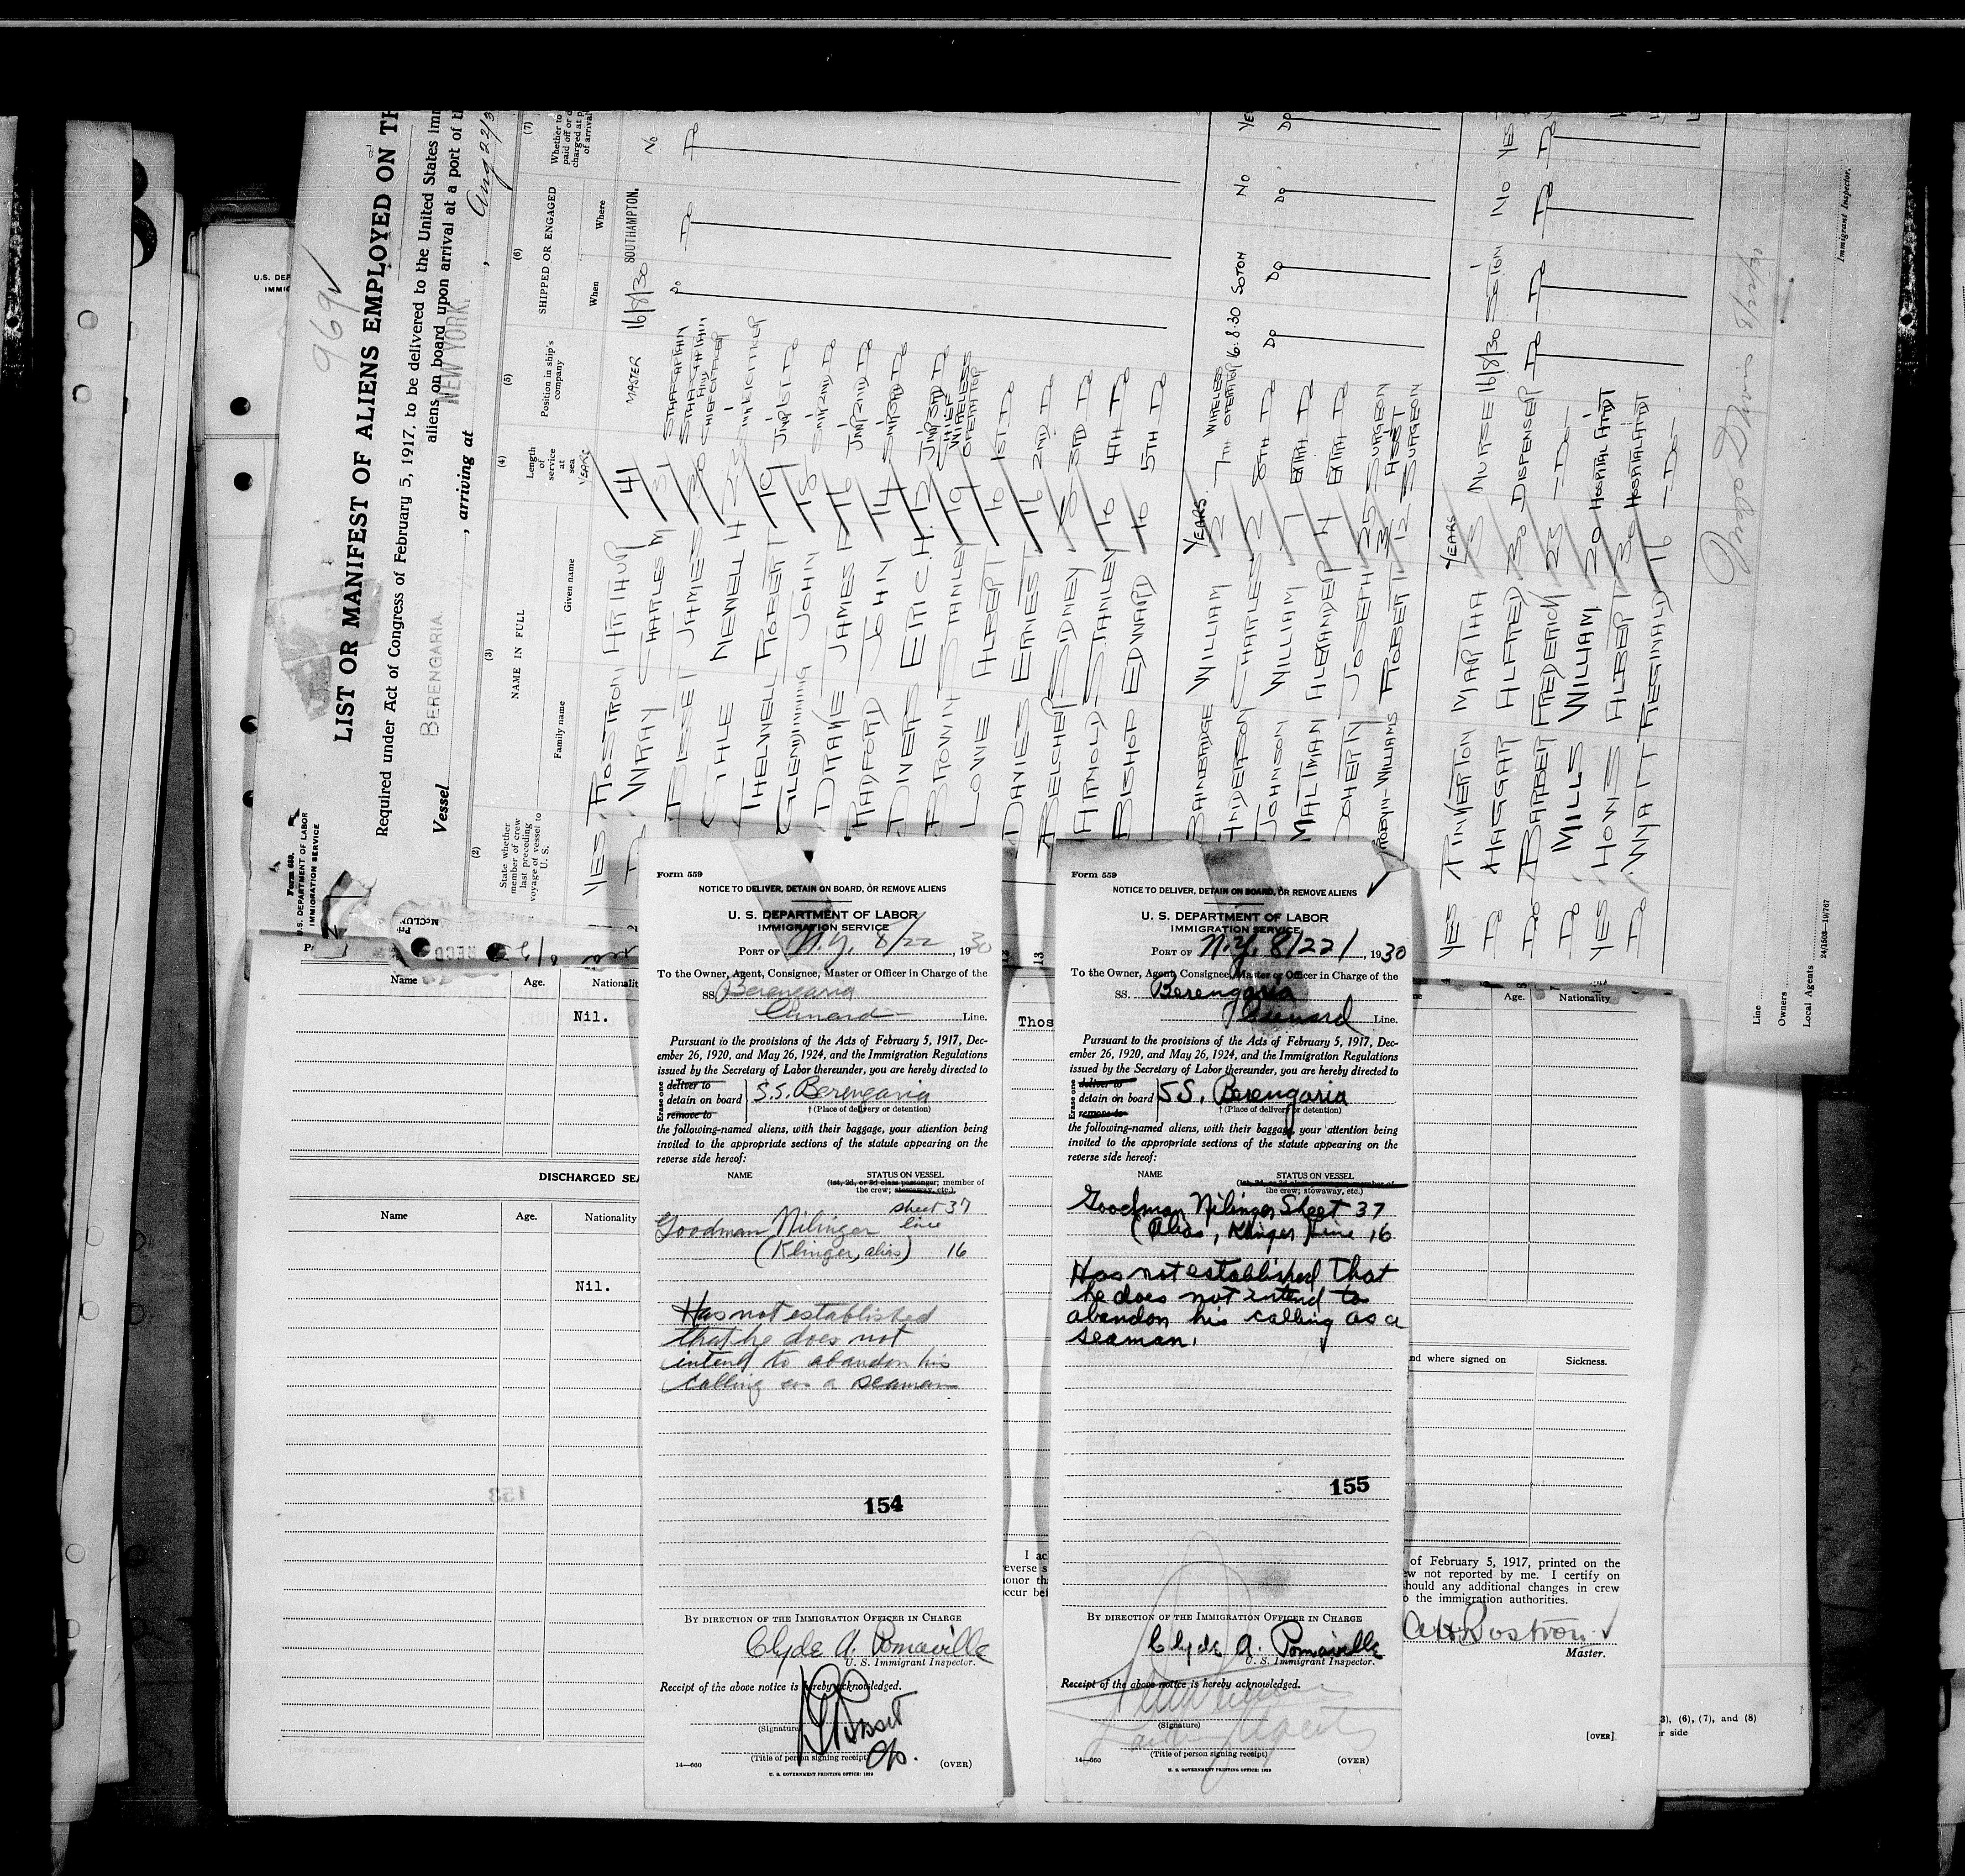 969✓
LIST OR MANIFEST OF ALIENS EMPLOYED ON TH
Required under Act of Congress of February 5, 1917, to be delivered to the United States imm
aliens on board upon arrival at a port of t
Vessel BERENGARIA , arriving at NEW YORK. , Aug 22/3
Form 689
U.S. DEPARTMENT OF LABOR
IMMIGRATION SERVICE
(2) (3) (4) (5) (6) (7)
State whether member of crew last preceding voyage of vessel to U. S.
NAME IN FULL
Family name Given name
Length of service at sea
YEARS
Position in ship's company
SHIPPED OR ENGAGED
When Where
Whether to
paid off or d
charged at p
of arrival
YES ROSTRON ARTHUR 41 MASTER 16/8/30 SOUTHAMPTON. No
WRAY CHARLES M STAFF CAPTAIN Do Do Do
BISSET JAMES 30 STAFF CAPTAIN AND CHIEF OFFICER
GALE NEWELL H
THELWELL ROBERT
GLENDINNING JOHN
DRAKE JAMES
RADFORD JOHN
DIVERS ERIC. H.
BROWN STANLEY 19 CHIEF WIRELESS OPERATOR
LOVIE ALBERT 1ST Do
DAVIES ERNEST 16 2ND Do
BELCHER SIDNEY 3RD Do
ARNOLD STANLEY 16 4TH Do
BISHOP EDWARD 16 5TH Do
YEARS.
BAINBRIDGE WILLIAM 2 7TH WIRELESS OPERATOR 16.8.30 SOTON No YE
ANDERSON CHARLES 2 8TH Do Do Do Do Do
JOHNSON WILLIAM 1
MALTMAN ALEXANDER 4
DOHERTY JOSEPH 25 SURGEON
WILLIAMS ROBERT 12 ASST SURGEON
YEARS
YES PINKERTON MARTHA 3 NURSE 16/8/30 SOTON No YES
Do HAGGAR ALFRED 30 DISPENSER Do Do Do Do
Do BARBER FREDERICK 23 -Do-
Do MILLS WILLIAM 20 HOSPITAL ATTDT
YES HOWS ALBERT 30 HOSPITAL ATTDT
Do WYATT REGINALD 16 -Do-
8/22/30
Immigrant Inspector.
Line
Owners
Local Agents
24/1503—19/767
U.S. DEP
IMMIG
Name Age. Nationalit
Nil.
DISCHARGED SEA
Name Age. Nationality
Nil.
Form 559
NOTICE TO DELIVER, DETAIN ON BOARD, OR REMOVE ALIENS
U. S. DEPARTMENT OF LABOR
IMMIGRATION SERVICE
PORT OF N.Y, 8/22, 1930
To the Owner, Agent, Consignee, Master or Officer in Charge of the
SS. Berengaria
Cunard Line.
Pursuant to the provisions of the Acts of February 5, 1917, Dec-
ember 26, 1920, and May 26, 1924, and the Immigration Regulations
issued by the Secretary of Labor thereunder, you are hereby directed to
Erase one
deliver to
detain on board S.S. Berengaria
remove to
† (Place of delivery or detention)
the following-named aliens, with their baggage, your attention being
invited to the appropriate sections of the statute appearing on the
reverse side hereof:
NAME STATUS ON VESSEL
(1st, 2d, or 3d class passenger; member of
the crew; stowaway, etc.)
sheet 37
Goodman Nilinger line
(Klinger, alias) 16
Has not established
that he does not
intend to abandon his
calling as a seaman
154
BY DIRECTION OF THE IMMIGRATION OFFICER IN CHARGE
Clyde A. Pomaville
U. S. Immigrant Inspector.
Receipt of the above notice is hereby acknowledged.
Bisset
(Signature)
C/o.
(Title of person signing receipt)
14—660 (OVER)
U. S. GOVERNMENT PRINTING OFFICE: 1929
13
Thos
I ac
everse s
onor tha
occur bef
Form 559
NOTICE TO DELIVER, DETAIN ON BOARD, OR REMOVE ALIENS
U. S. DEPARTMENT OF LABOR
IMMIGRATION SERVICE
PORT OF N.Y, 8/22/, 1930
To the Owner, Agent, Consignee, Master or Officer in Charge of the
SS. Berengaria
Cunard Line.
Pursuant to the provisions of the Acts of February 5, 1917, Dec-
ember 26, 1920, and May 26, 1924, and the Immigration Regulations
issued by the Secretary of Labor thereunder, you are hereby directed to
Erase one
deliver to
detain on board SS. Berengaria
remove to
† (Place of delivery or detention)
the following-named aliens, with their baggage, your attention being
invited to the appropriate sections of the statute appearing on the
reverse side hereof:
NAME STATUS ON VESSEL
(1st, 2d, or 3d class passenger; member of
the crew; stowaway, etc.)
Goodman Nilinger Sheet 37
(Alias, Klinger) Line 16
Has not established that
he does not intend to
abandon his calling as a
seaman.
155
BY DIRECTION OF THE IMMIGRATION OFFICER IN CHARGE
Clyde A. Pomaville
U. S. Immigrant Inspector.
Receipt of the above notice is hereby acknowledged.
(Signature)
(Title of person signing receipt)
14—660 (OVER)
U. S. GOVERNMENT PRINTING OFFICE: 1929
me Age. Nationality
nd where signed on Sickness.
of February 5, 1917, printed on the
ew not reported by me. I certify on
hould any additional changes in crew
o the immigration authorities.
A H Rostron ✓
Master.
[OVER]
3), (6), (7), and (8)
r side